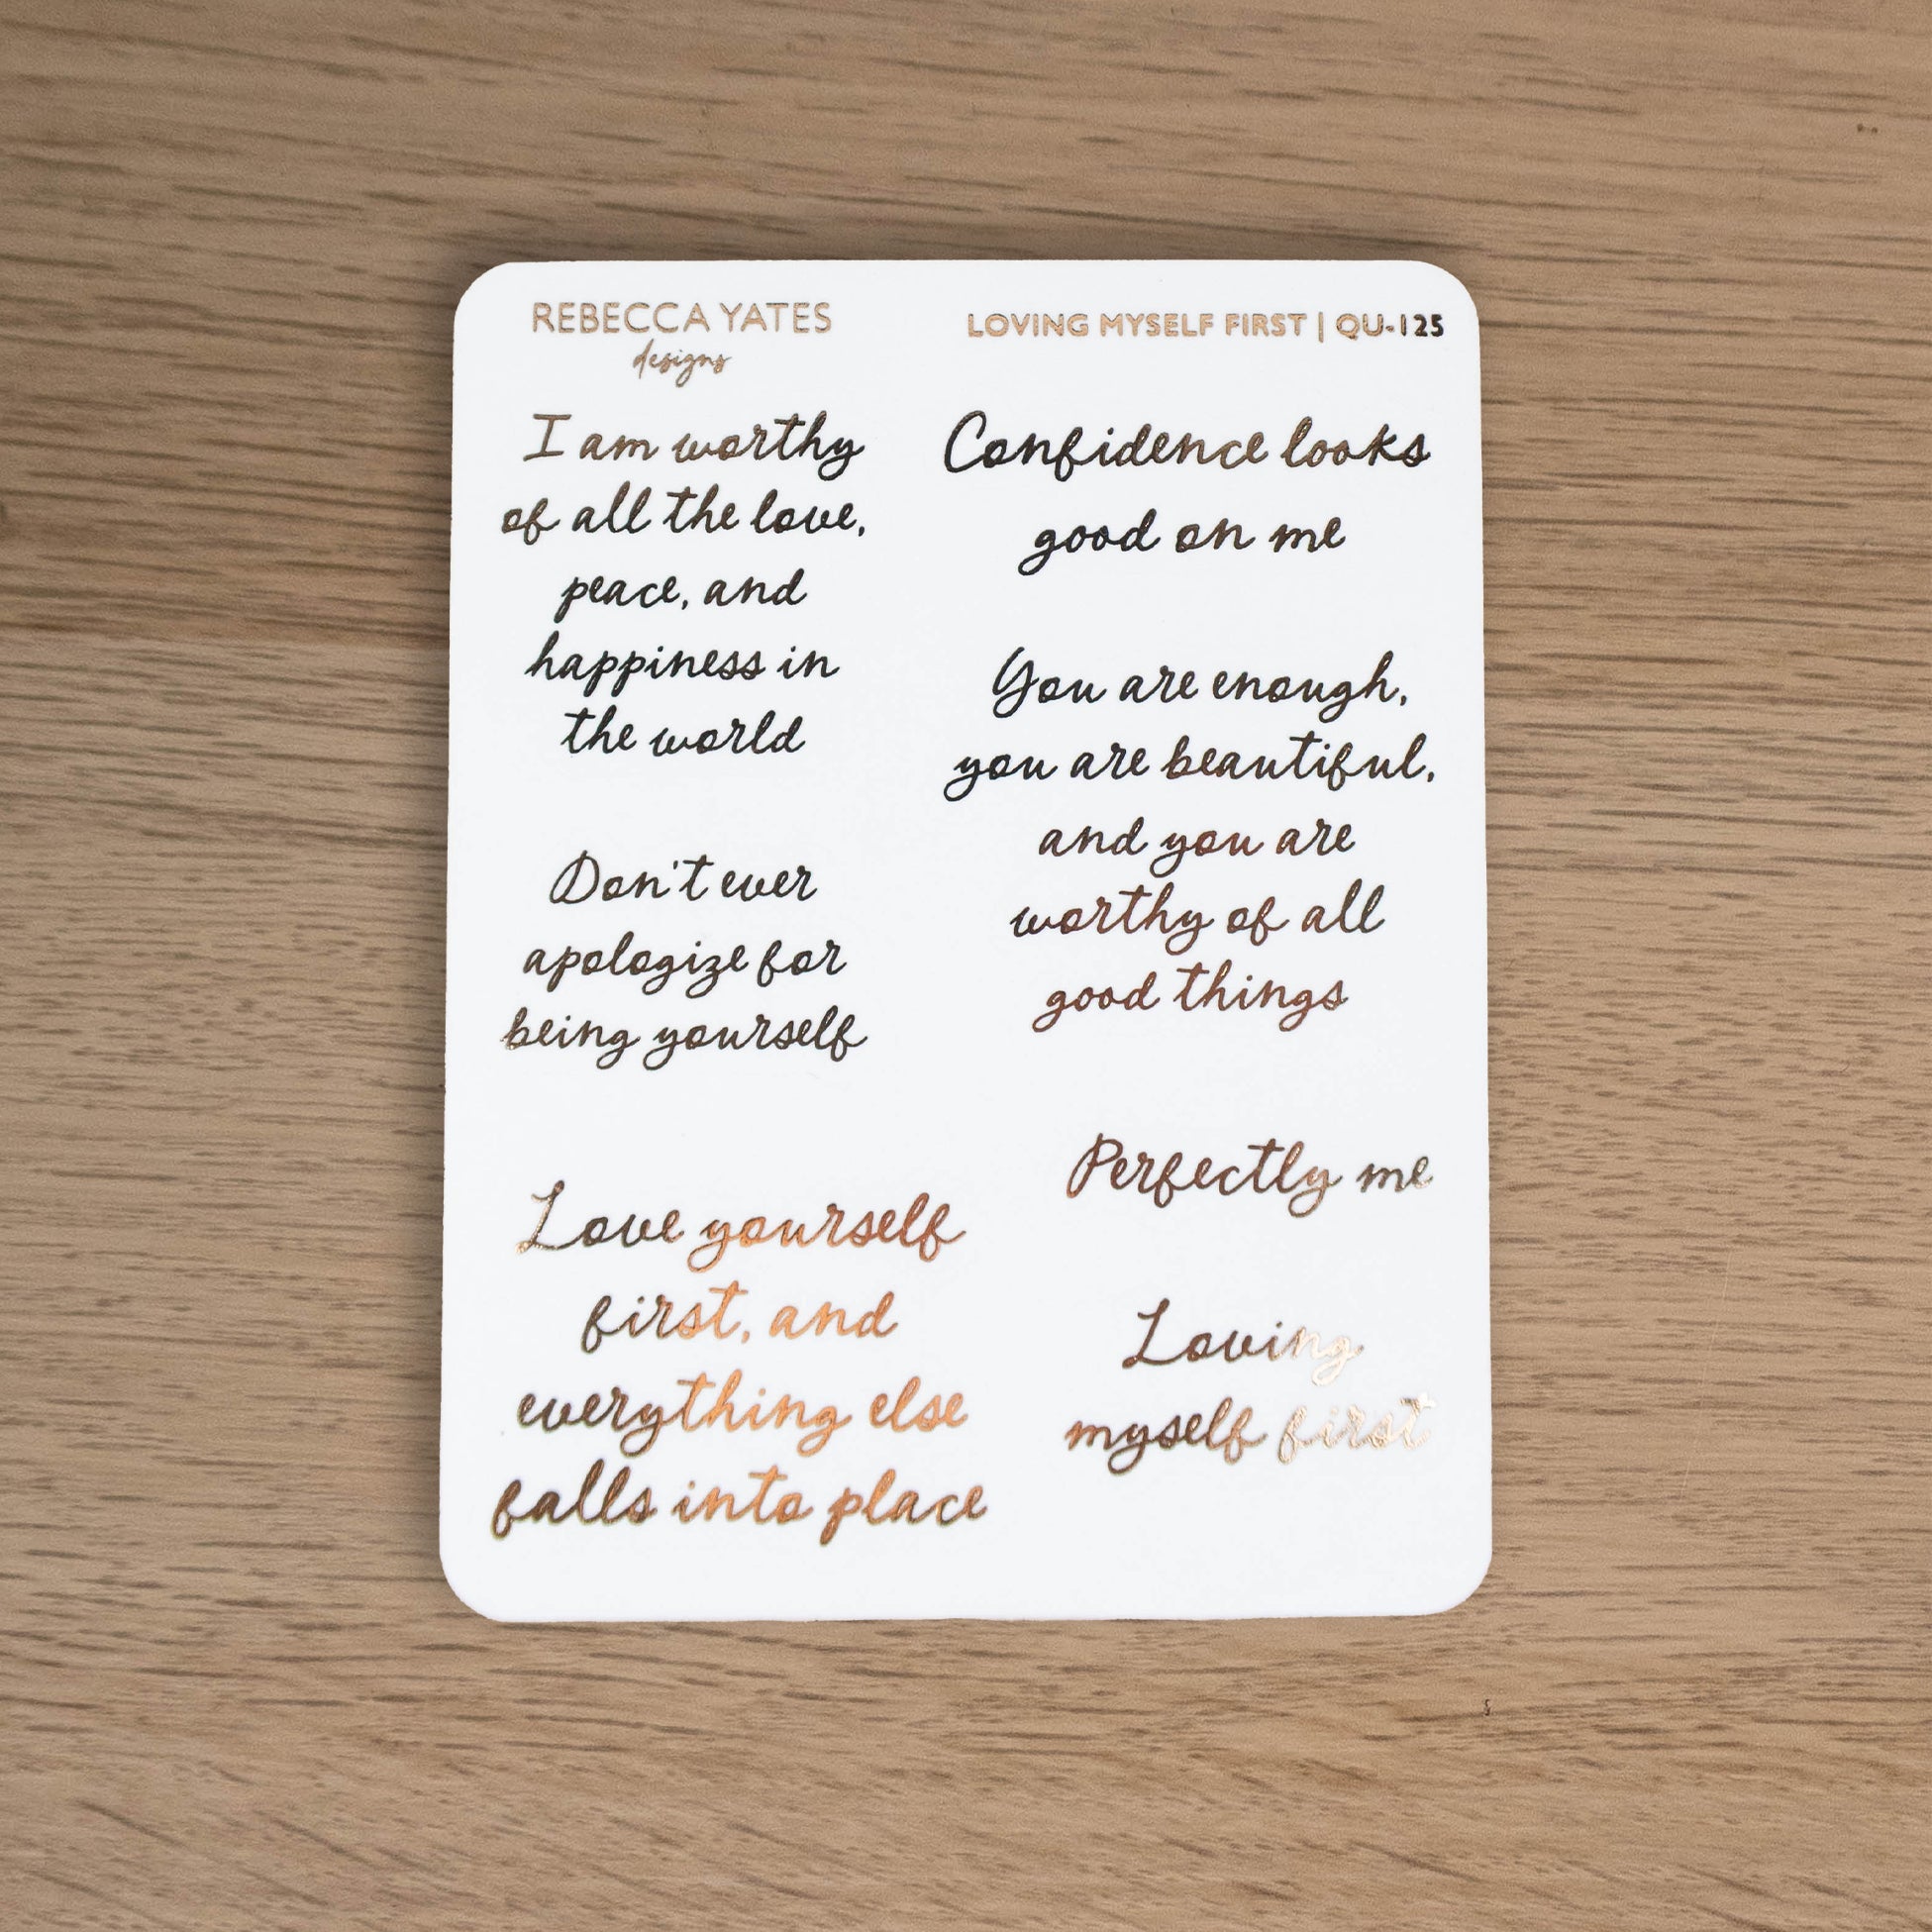 REBECCA YATES
designs
LOVING MYSELF FIRST | QU-125
I am worthy
of all the love,
peace, and
happiness in
the world
Don't ever
apologize for
being yourself
Love yourself
first, and
everything else
falls into place
Confidence looks
good on me
You are enough,
you are beautiful,
and you are
worthy of all
good things
Perfectly me
Loving
myself first